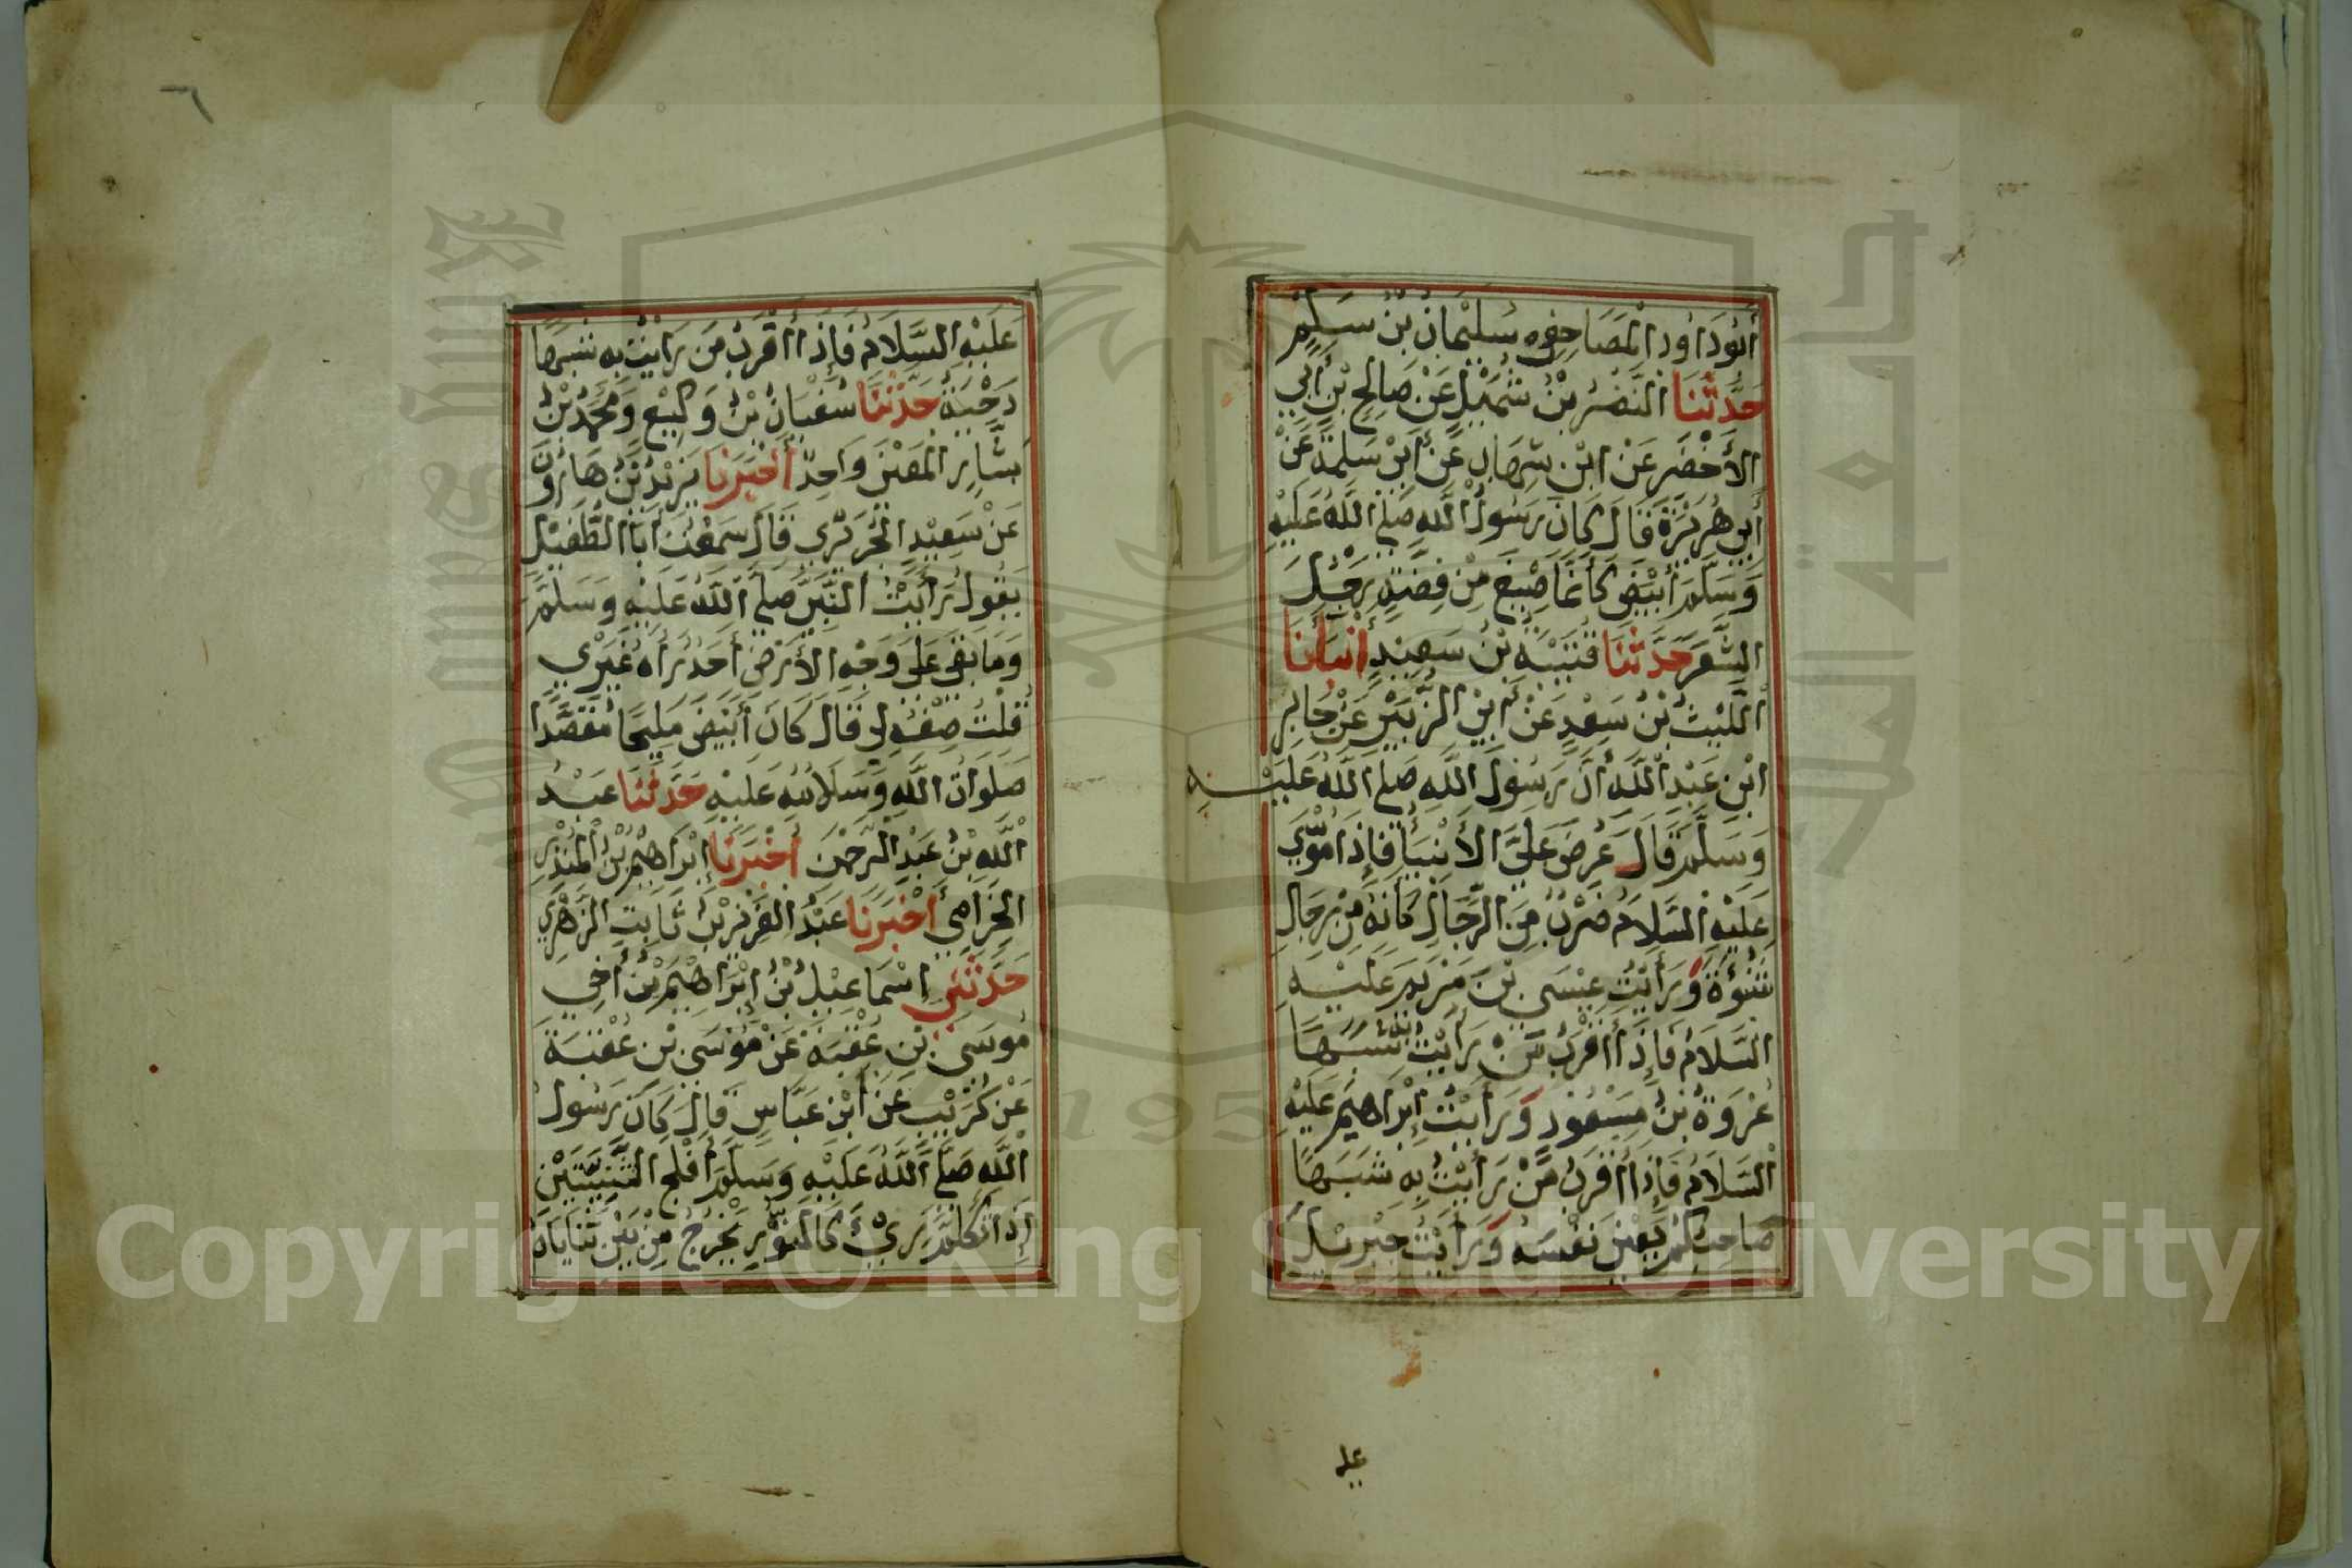 أَبُو دَاوُدَ الْمَصَاحِفِي سُلَيْمَانُ بْنُ سَلِمٍ
حَدَّثَنَا النَّضْرُ بْنُ شُمَيْلٍ عَنْ صَالِحِ بْنِ أَبِي
الأَخْضَرِ عَنْ ابْنِ شِهَابٍ عَنْ أَبِي سَلَمَةَ عَنْ
أَبِي هُرَيْرَةَ قَالَ كَانَ رَسُولُ اللَّهِ صَلَّى اللَّهُ عَلَيْهِ
وَسَلَّمَ أَبْيَضَ كَأَنَّمَا صِيغَ مِنْ فِضَّةٍ رَجْلَ
الشَّعَرِ حَدَّثَنَا قُتَيْبَةُ بْنُ سَعِيدٍ أَنْبَأَنَا
اللَّيْثُ بْنُ سَعْدٍ عَنْ أَبِي الزُّبَيْرِ عَنْ جَابِرِ
ابْنِ عَبْدِ اللَّهِ أَنَّ رَسُولَ اللَّهِ صَلَّى اللَّهُ عَلَيْهِ
وَسَلَّمَ قَالَ عُرِضَ عَلَيَّ الأَنْبِيَا فَإِذَا مُوسَى
عَلَيْهِ السَّلَامُ ضَرْبٌ مِنَ الرِّجَالِ كَأَنَّهُ مِنْ رِجَالِ
شَنُؤَةَ وَرَأَيْتُ عِيْسَى بْنَ مَرْيَمَ عَلَيْهِ
السَّلَامُ فَإِذَا أَقْرَبُ مَنْ رَأَيْتُ بِهِ شَبَهًا
عُرْوَةُ بْنُ مَسْعُودٍ وَرَأَيْتُ إِبْرَاهِيمَ عَلَيْهِ
السَّلَامُ فَإِذَا أَقْرَبُ مَنْ رَأَيْتُ بِهِ شَبَهًا
صَاحِبُكُمْ يَعْنِي نَفْسَهُ وَرَأَيْتُ جِبْرِيْلَ
علـ
٦
عَلَيْهِ السَّلَامُ فَإِذَا أَقْرَبُ مَنْ رَأَيْتُ بِهِ شَبَهًا
دَحْيَةُ حَدَّثَنَا سُفْيَانُ بْنُ وَكِيْعٍ وَمُحَمَّدُ بْنُ
بَشَّارٍ الْمَعْنَى وَاحِدٌ أَخْبَرَنَا يَزِيْدُ بْنُ هَارُونَ
عَنْ سَعِيْدٍ الْجُرَيْرِي قَالَ سَمِعْتُ أَبَا الطُّفَيْلِ
يَقُولُ رَأَيْتُ النَّبِيَّ صَلَّى اللَّهُ عَلَيْهِ وَسَلَّمَ
وَمَا بَقِيَ عَلَى وَجْهِ الأَرْضِ أَحَدٌ رَآهُ غَيْرِي
قُلْتُ صِفْهُ لِي قَالَ كَانَ أَبْيَضَ مَلِيْحًا مُقَصَّدًا
صَلَوَاتُ اللَّهِ وَسَلَامُهُ عَلَيْهِ حَدَّثَنَا عَبْدُ
اللَّهِ بْنُ عَبْدِ الرَّحْمَنِ أَخْبَرَنَا إِبْرَاهِيْمُ بْنُ الْمُنْذِرِ
الْحِزَامِيُّ أَخْبَرَنَا عَبْدُ الْعَزِيزِ بْنُ ثَابِتٍ الزُّهْرِيُّ
حَدَّثَنِي إِسْمَاعِيْلُ بْنُ إِبْرَاهِيْمَ بْنُ أَخِي
مُوسَى بْنِ عُقْبَةَ عَنْ مُوْسَى بْنِ عُقْبَةَ
عَنْ كُرَيْبٍ عَنْ ابْنِ عَبَّاسٍ قَالَ كَانَ رَسُولُ
اللَّهِ صَلَّى اللَّهُ عَلَيْهِ وَسَلَّمَ أَفْلَجَ الثَّنِيَّتَيْنِ
إِذَا تَكَلَّمَ رِيءَ كَالنُّوْرِ يَخْرُجُ مِنْ بَيْنِ ثَنَايَاهُ
Copyright © King Saud University
1957